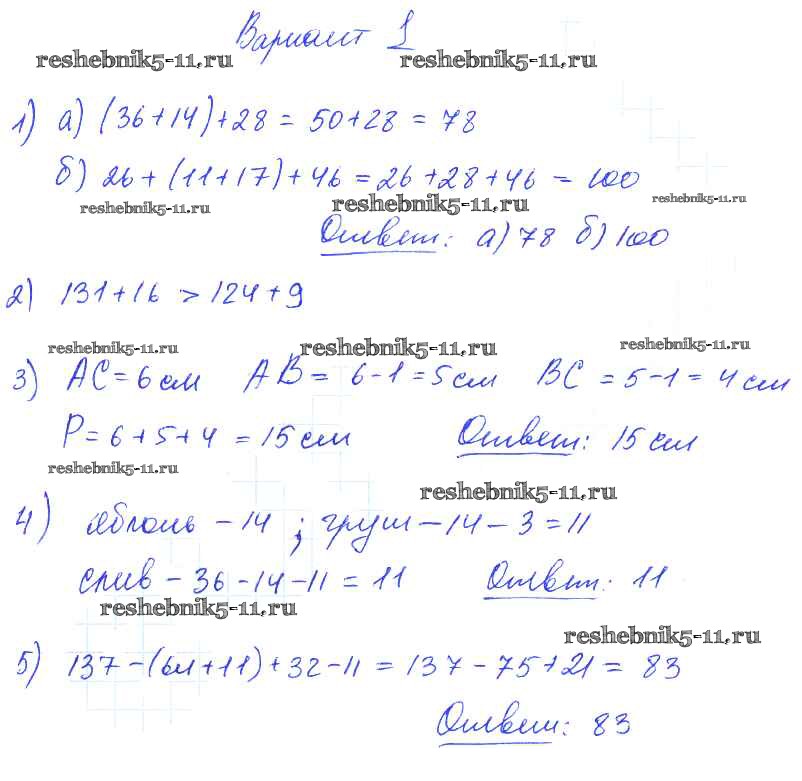 Вариант 1
reshebnik5-11.ru reshebnik5-11.ru
1) а) (36+14)+28 = 50+28 = 78
б) 26+(11+17)+46 = 26+28+46 = 100
reshebnik5-11.ru reshebnik5-11.ru reshebnik5-11.ru
Ответ: а) 78 б) 100
2) 131+16 > 124+9
reshebnik5-11.ru reshebnik5-11.ru reshebnik5-11.ru
3) AC = 6 см AB = 6-1 = 5 см BC = 5-1 = 4 см
P = 6+5+4 = 15 см Ответ: 15 см
reshebnik5-11.ru
reshebnik5-11.ru
4) яблонь - 14 ; груш - 14 - 3 = 11
слив - 36 - 14 - 11 = 11 Ответ: 11
reshebnik5-11.ru
reshebnik5-11.ru
5) 137 - (64+11) + 32 - 11 = 137 - 75 + 21 = 83
Ответ: 83